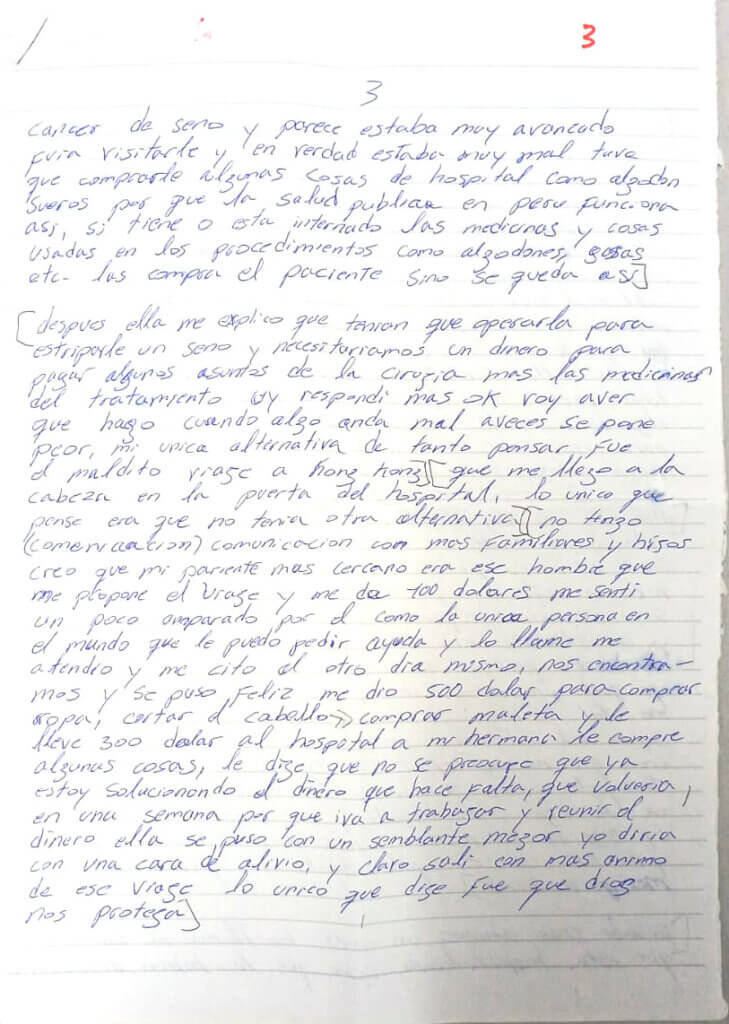 3
3
cancer de seno y parece estaba muy avancado
fuia visitarle y en verdad estaba muy mal tuve
que comprarle algunas cosas de hospital como algodon
sueros por que la salud publica en peru funciona
asi, si tiene o esta internado las medicinas y cosas
usadas en los procedimientos como algodones, gasas
etc- las compra el paciente sino se queda asi]
[despues ella me explico que tenian que operarla para
estriparle un seno y necesitariamos un dinero para
pagar algunos asuntos de la cirugia mas las medicinas
del tratamiento y respondi mas ok voy aver
que hago cuando algo anda mal aveces se pone
peor, mi unica alternativa de tanto pensar fue
el maldito viage a hong kong][que me llego a la
cabeza en la puerta del hospital, lo unico que
pense era que no tenia otra alternativa][no tengo
(comervacion) comunicacion con mas familiares y higos
creo que mi pariente mas cercano era ese hombre que
me propone el viage y me da 100 dolares me senti
un poco amparado por el como la unica persona en
el mundo que le puedo pedir ayuda y lo llame me
atendio y me cito el otro dia mismo, nos encontra-
mos y se puso feliz me dio 500 dolar para comprar
ropa, cortar el caballo comprar maleta y le
lleve 300 dolar al hospital a mi hermana le compre
algunas cosas, le dige que no se preocupe que ya
estoy solucionando el dinero que hace falta, que volveria,
en una semana por que iva a trabagar y reunir el
dinero ella se puso con un semblante megor yo diria
con una cara de alivio, y claro sali con mas animo
de ese viage lo unico que dige fue que dios
nos protega]